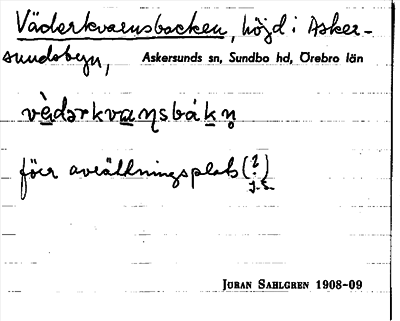 Väderkvarnsbacken, höjd i Asker-
sundsbyn, Askersunds sn, Sundbo hd, Örebro län
vèdərkvaɳsbákņ̥
förr avrättningsplats (?)
J.S.
JÖRAN SAHLGREN 1908-09